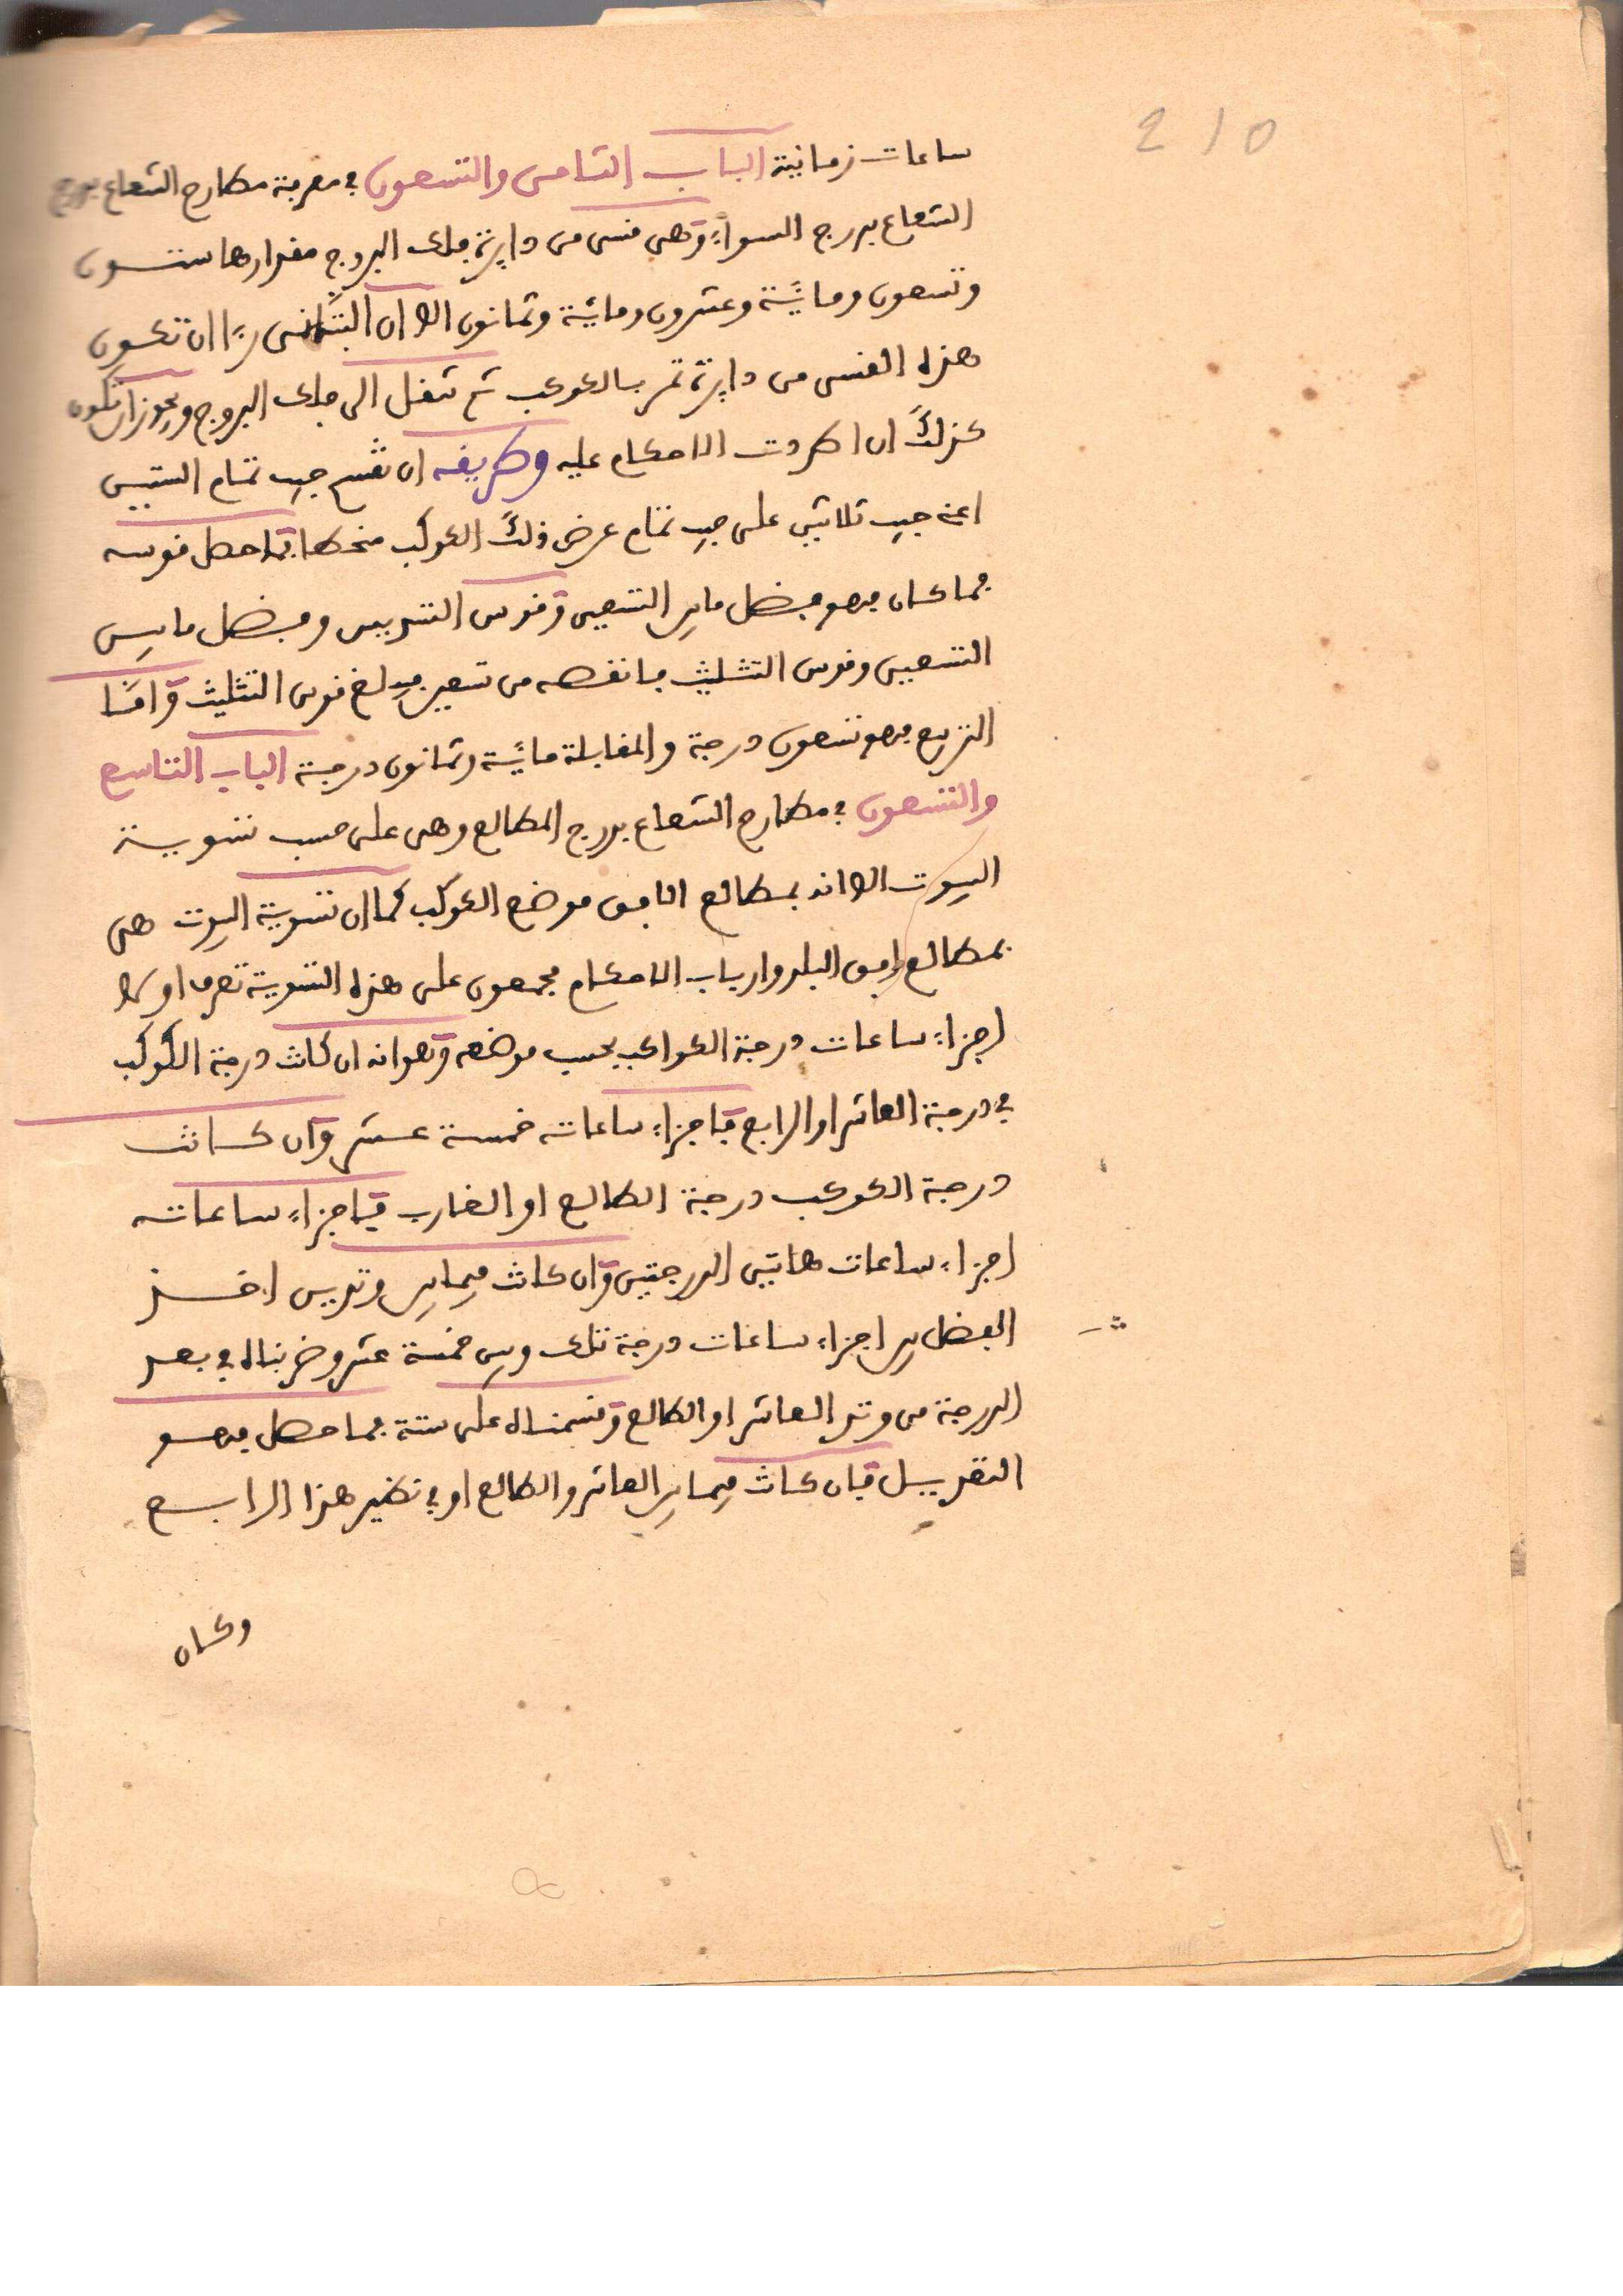 210
ساعات زمانية الباب الثامن والتسعون في معرفة مطارح الشعاع بدرج
الشعاع بدرج السواء وهى قسى من دايرة فلك البروج مقدارها ستون
وتسعون ومائة وعشرون ومائة وثمانون الا ان رءا ان تكون
هذه القسى من دايرة تمر بالكوكب ثم تنقل الى فلك البروج ويجوز ان تكون
كذلك ان اطردت الاحكام عليه وطريقه ان تقسم جيب تمام الستين
اعنى جيب ثلاثين على جيب تمام عرض ذلك الكوكب منحطا فما حصل قوسه
فما كان فهو فضل ما بين التسعين وقوس التسديس وفضل ما بين
التسعين وقوس التثليث فانقصه من تسعين فيبلغ قوس التثليث واما
التربيع فهو تسعون درجة والمقابلة مائة وثمانون درجة الباب التاسع
والتسعون في مطارح الشعاع بدرج المطالع وهى على حسب تسوية
البيوت الا انه بمطالع افق موضع الكوكب كما ان تسوية البيوت هى
بمطالع افق البلد وارباب الاحكام مجمعون على هذه التسوية تعرف اولا
اجزاء ساعات درجة الكواكب بحسب موضعه وهو انه ان كانت درجة الكوكب
في درجة العاشر او الرابع فاجزاء ساعاته خمسة عشر وان كانت
درجة الكوكب درجة الطالع او الغارب فاجزاء ساعاته
اجزاء ساعات هاتين الدرجتين وان كانت فيما بين وتدين اخذ
الفضل بين اجزاء ساعات درجة تلك وبين خمسة عشر وضربناه في بعد
الدرجة من وتد العاشر او الطالع وقسمناه على ستة فما حصل فهو
التعديل فان كانت فيما بين العاشر والطالع او في نظير هذا الرابع
وكان